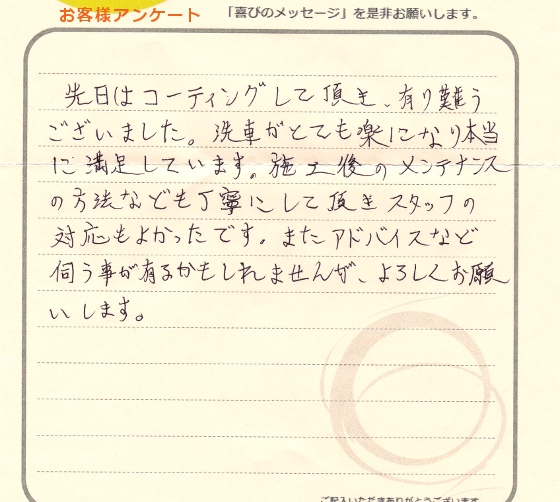 お客様アンケート 「喜びのメッセージ」を是非お願いします。
先日はコーティングして頂き、有り難う
ございました。洗車がとても楽になり本当
に満足しています。施工後のメンテナンス
の方法なども丁寧にして頂きスタッフの
対応もよかったです。またアドバイスなど
伺う事が有るかもしれませんが、よろしくお願
いします。
ご記入いただきありがとうございます。